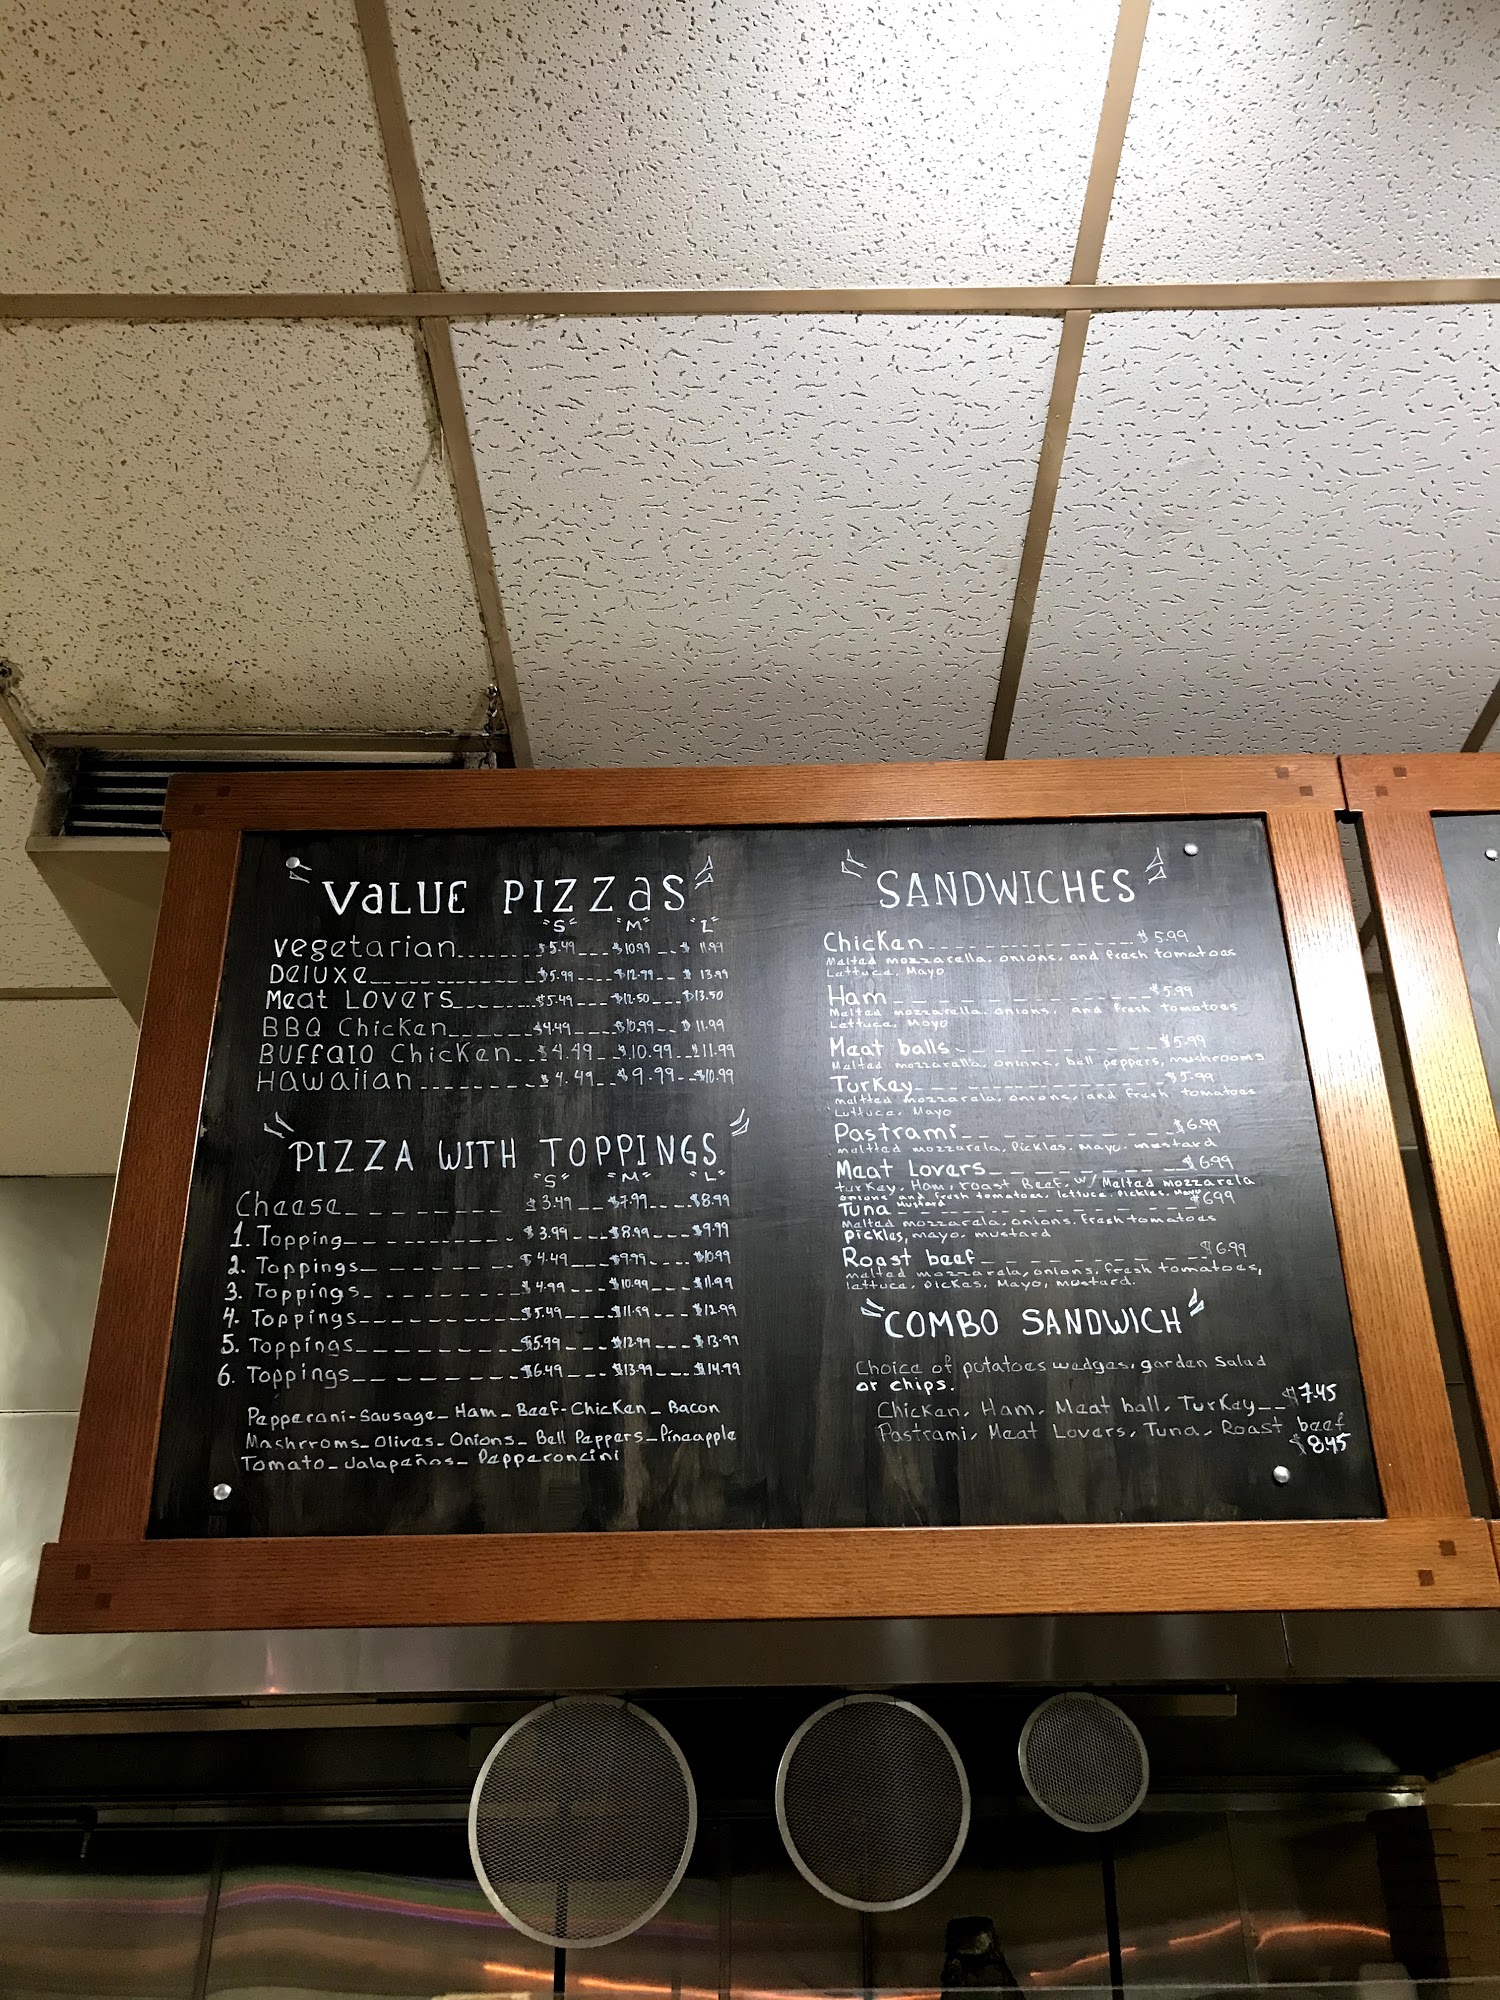 VALUE PIZZAS
"S" "M" "L"
Vegetarian $5.49 $10.99 $11.99
Deluxe $5.99 $12.99 $13.99
Meat Lovers $5.49 $12.50 $13.50
BBQ Chicken $4.49 $10.99 $11.99
Buffalo Chicken $4.49 $10.99 $11.99
Hawaiian $4.49 $9.99 $10.99
PIZZA WITH TOPPINGS
"S" "M" "L"
Cheese $3.49 $7.99 $8.99
1. Topping $3.99 $8.99 $9.99
2. Toppings $4.49 $9.99 $10.99
3. Toppings $4.99 $10.99 $11.99
4. Toppings $5.49 $11.99 $12.99
5. Toppings $5.99 $12.99 $13.99
6. Toppings $6.49 $13.99 $14.99
Pepperoni-Sausage-Ham-Beef-Chicken-Bacon
Mashrroms-Olives-Onions-Bell Peppers-Pineapple
Tomato-Jalapeños-Pepperoncini
SANDWICHES
Chicken $5.99
Melted mozzarella, onions, and fresh tomatoes
Lettuce, Mayo
Ham $5.99
Melted mozzarella, onions, and fresh tomatoes
Lettuce, Mayo
Meat balls $5.99
Melted mozzarella, onions, bell peppers, mushrooms
Turkey $5.99
meltted mozzarela, onions, and fresh tomatoes
Luttuce, Mayo
Pastrami $6.99
meltted mozzarela, Pickles, Mayo, mustard
Meat Lovers $6.99
turkey, Ham, roast Beef, w/ Melted mozzarela
onions and fresh tomatoes, lettuce, pickles, Mayo
Mustard
Tuna $6.99
Melted mozzarela, onions, fresh tomatoes
pickles, mayo, mustard
Roast beef $6.99
melted mozzarela, onions, fresh tomatoes,
lettuce, pickes, Mayo, mustard.
COMBO SANDWICH
Choice of potatoes wedges, garden Salad
or chips.
Chicken, Ham, Meat ball, Turkey $7.45
Pastrami, Meat Lovers, Tuna, Roast beef
$8.45